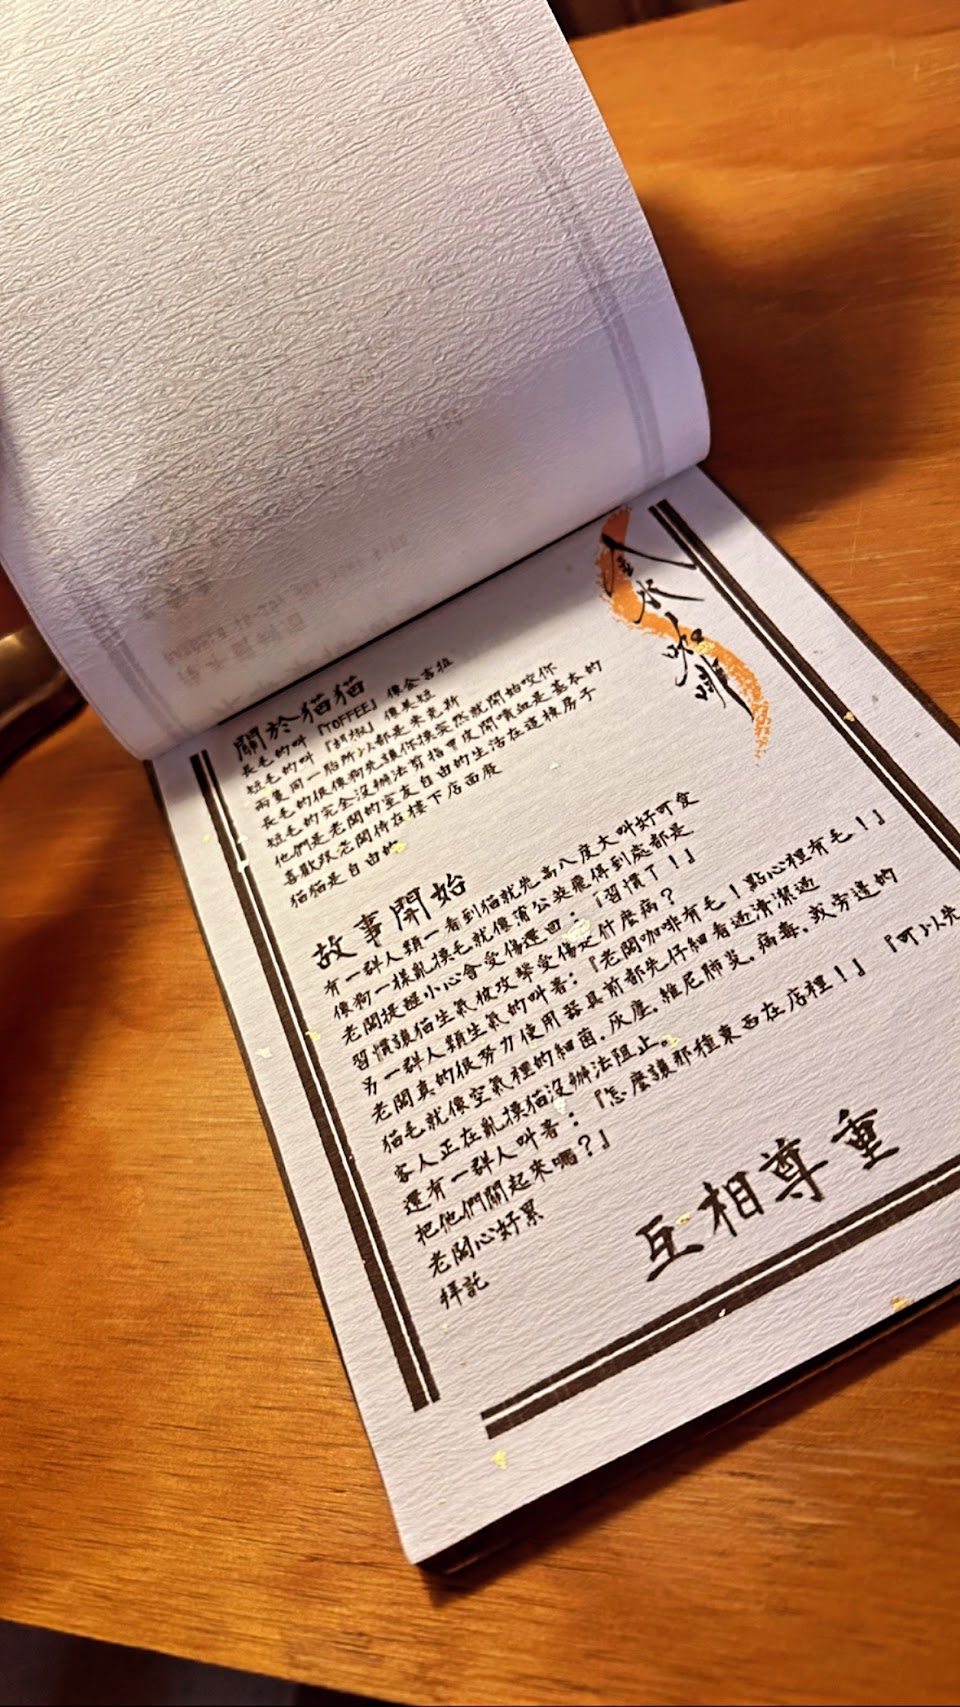 關於貓貓
長毛的叫『TOFFEE』像金吉拉
短毛的叫『胡椒』像美短
兩隻同一胎所以都是米克斯
長毛的很像狗先讓你摸突然就開始咬你
短毛的完全沒辦法剪指甲皮開噴血是基本的
他們是老闆的室友自由的生活在這棟房子
喜歡跟老闆待在樓下店面廢
貓貓是自由的
故事開始
有一群人類一看到貓就先高八度大叫好可愛
像狗一樣亂摸毛就像蒲公英飛得到處都是
老闆提醒小心會受傷還回：『習慣了！』
習慣讓貓生氣被攻擊受傷是什麼病？
另一群人類生氣的叫著：『老闆咖啡有毛！點心裡有毛！』
老闆真的很努力使用器具前都先仔細看過清潔過
貓毛就像空氣裡的細菌.灰塵.維尼肺炎.病毒.或旁邊的
客人正在亂摸貓沒辦法阻止。
還有一群人叫著：『怎麼讓那種東西在店裡！』『可以先
把他們關起來嗎？』
老闆心好累
拜託
互相尊重